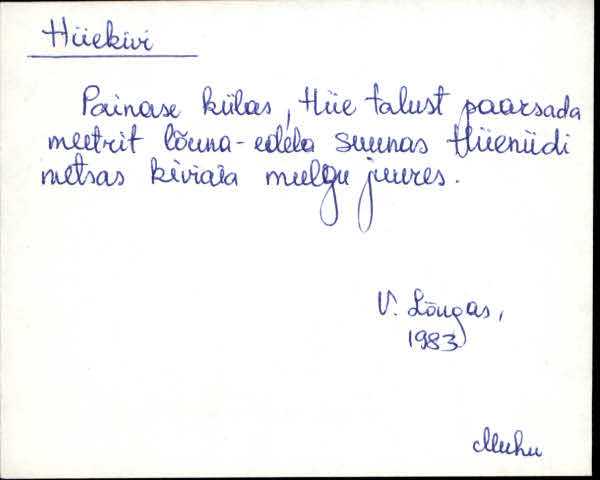 Hüekivi
Painase külas, Hüe talust paarsada
meetrit lõuna-edela suunas Hüeniidi
metsas kiviaia mulgu juures.
V. Lõugas,
1983
Muhu